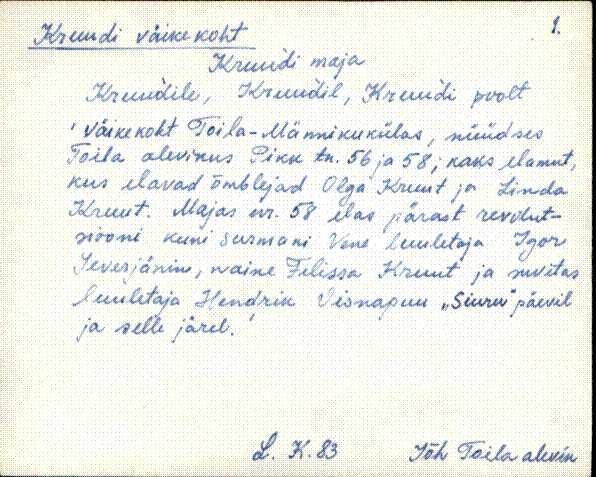 Kruudi väikekoht 1.
Kruudi maja
Kruudile, Kruudil, Kruudi poolt
'väikekoht Toila-Männikukülas, nüüdses
Toila alevikus Pikk tn. 56 ja 58; kaks elamut,
kus elavad õmblejad Olga Kruut ja Linda
Kruut. Majas nr. 58 elas pärast revolut-
siooni kuni surmani Vene luuletaja Igor
Severjänin, naine Felissa Kruut ja suvitas
luuletaja Hendrik Visnapuu „Siuru" päevil
ja selle järel.'
L. K. 83 Jõh Toila alevik